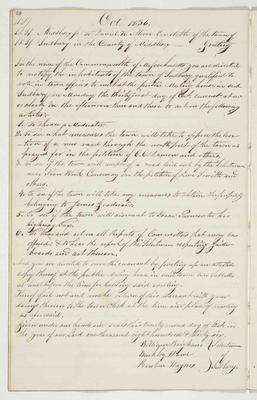 Oct. 1836.
Middlesex ss. to Daniel W. Constable of the town of
Sudbury in the County of Middlesex Greeting
In the name of the Commonwealth of Massachusetts you are directed
to notify the inhabitants of the town of Sudbury qualified to
vote in town affairs to meet at the public Meeting house in said
Sudbury on Monday the day of Oct. current at
o'clock in the afternoon then and there to act on the following
articles.
1. To choose a Moderator.
2. To see what measures the town will take to oppose the loca-
tion of a new road through the north part of the town as
prayed for in the petition of and others.
3. To see if the town will accept of a road laid out by the Selectmen
near Town Causeway on the petition of and
others.
4. To see if the town will take any measures to obtain the property
belonging to James
5. To see if the town will to Isaac his
highway tax.
6. To hear and act on all Reports of Committees that may be
offered & to hear the report of the Selectmen respecting Guide
boards and act thereon.
And you are directed to serve this warrant by posting up an attested
copy thereof at the public meeting house in said town two Sabbaths
at least before the time for holding said meeting.
Hereof fail not and make return of this warrant with your
doings thereon to the Town Clerk at the time and place of meeting
as aforesaid.
Given under our hands and seals this twenty second day of Oct. in
the year of our Lord one thousand eight hundred & thirty six.
William Brigham
Selectmen
of
Reuben Haynes
Sudbury